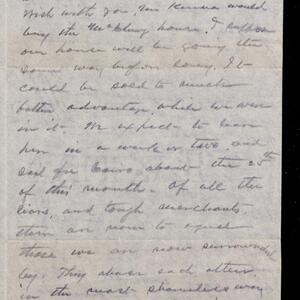 wish with you, Mr. Kenna would
buy the McClung house. I suppose
our house will be going the
same way before long. It
could be sold to much
better advantage while we were
in it. We expect to leave
here in a week or two, and
sail for Cairo about the 25th
of this month. Of all the
liars, and tough merchants,
there are none to equal
those we are now surrounded
by. They abuse each other
in the most shameless way